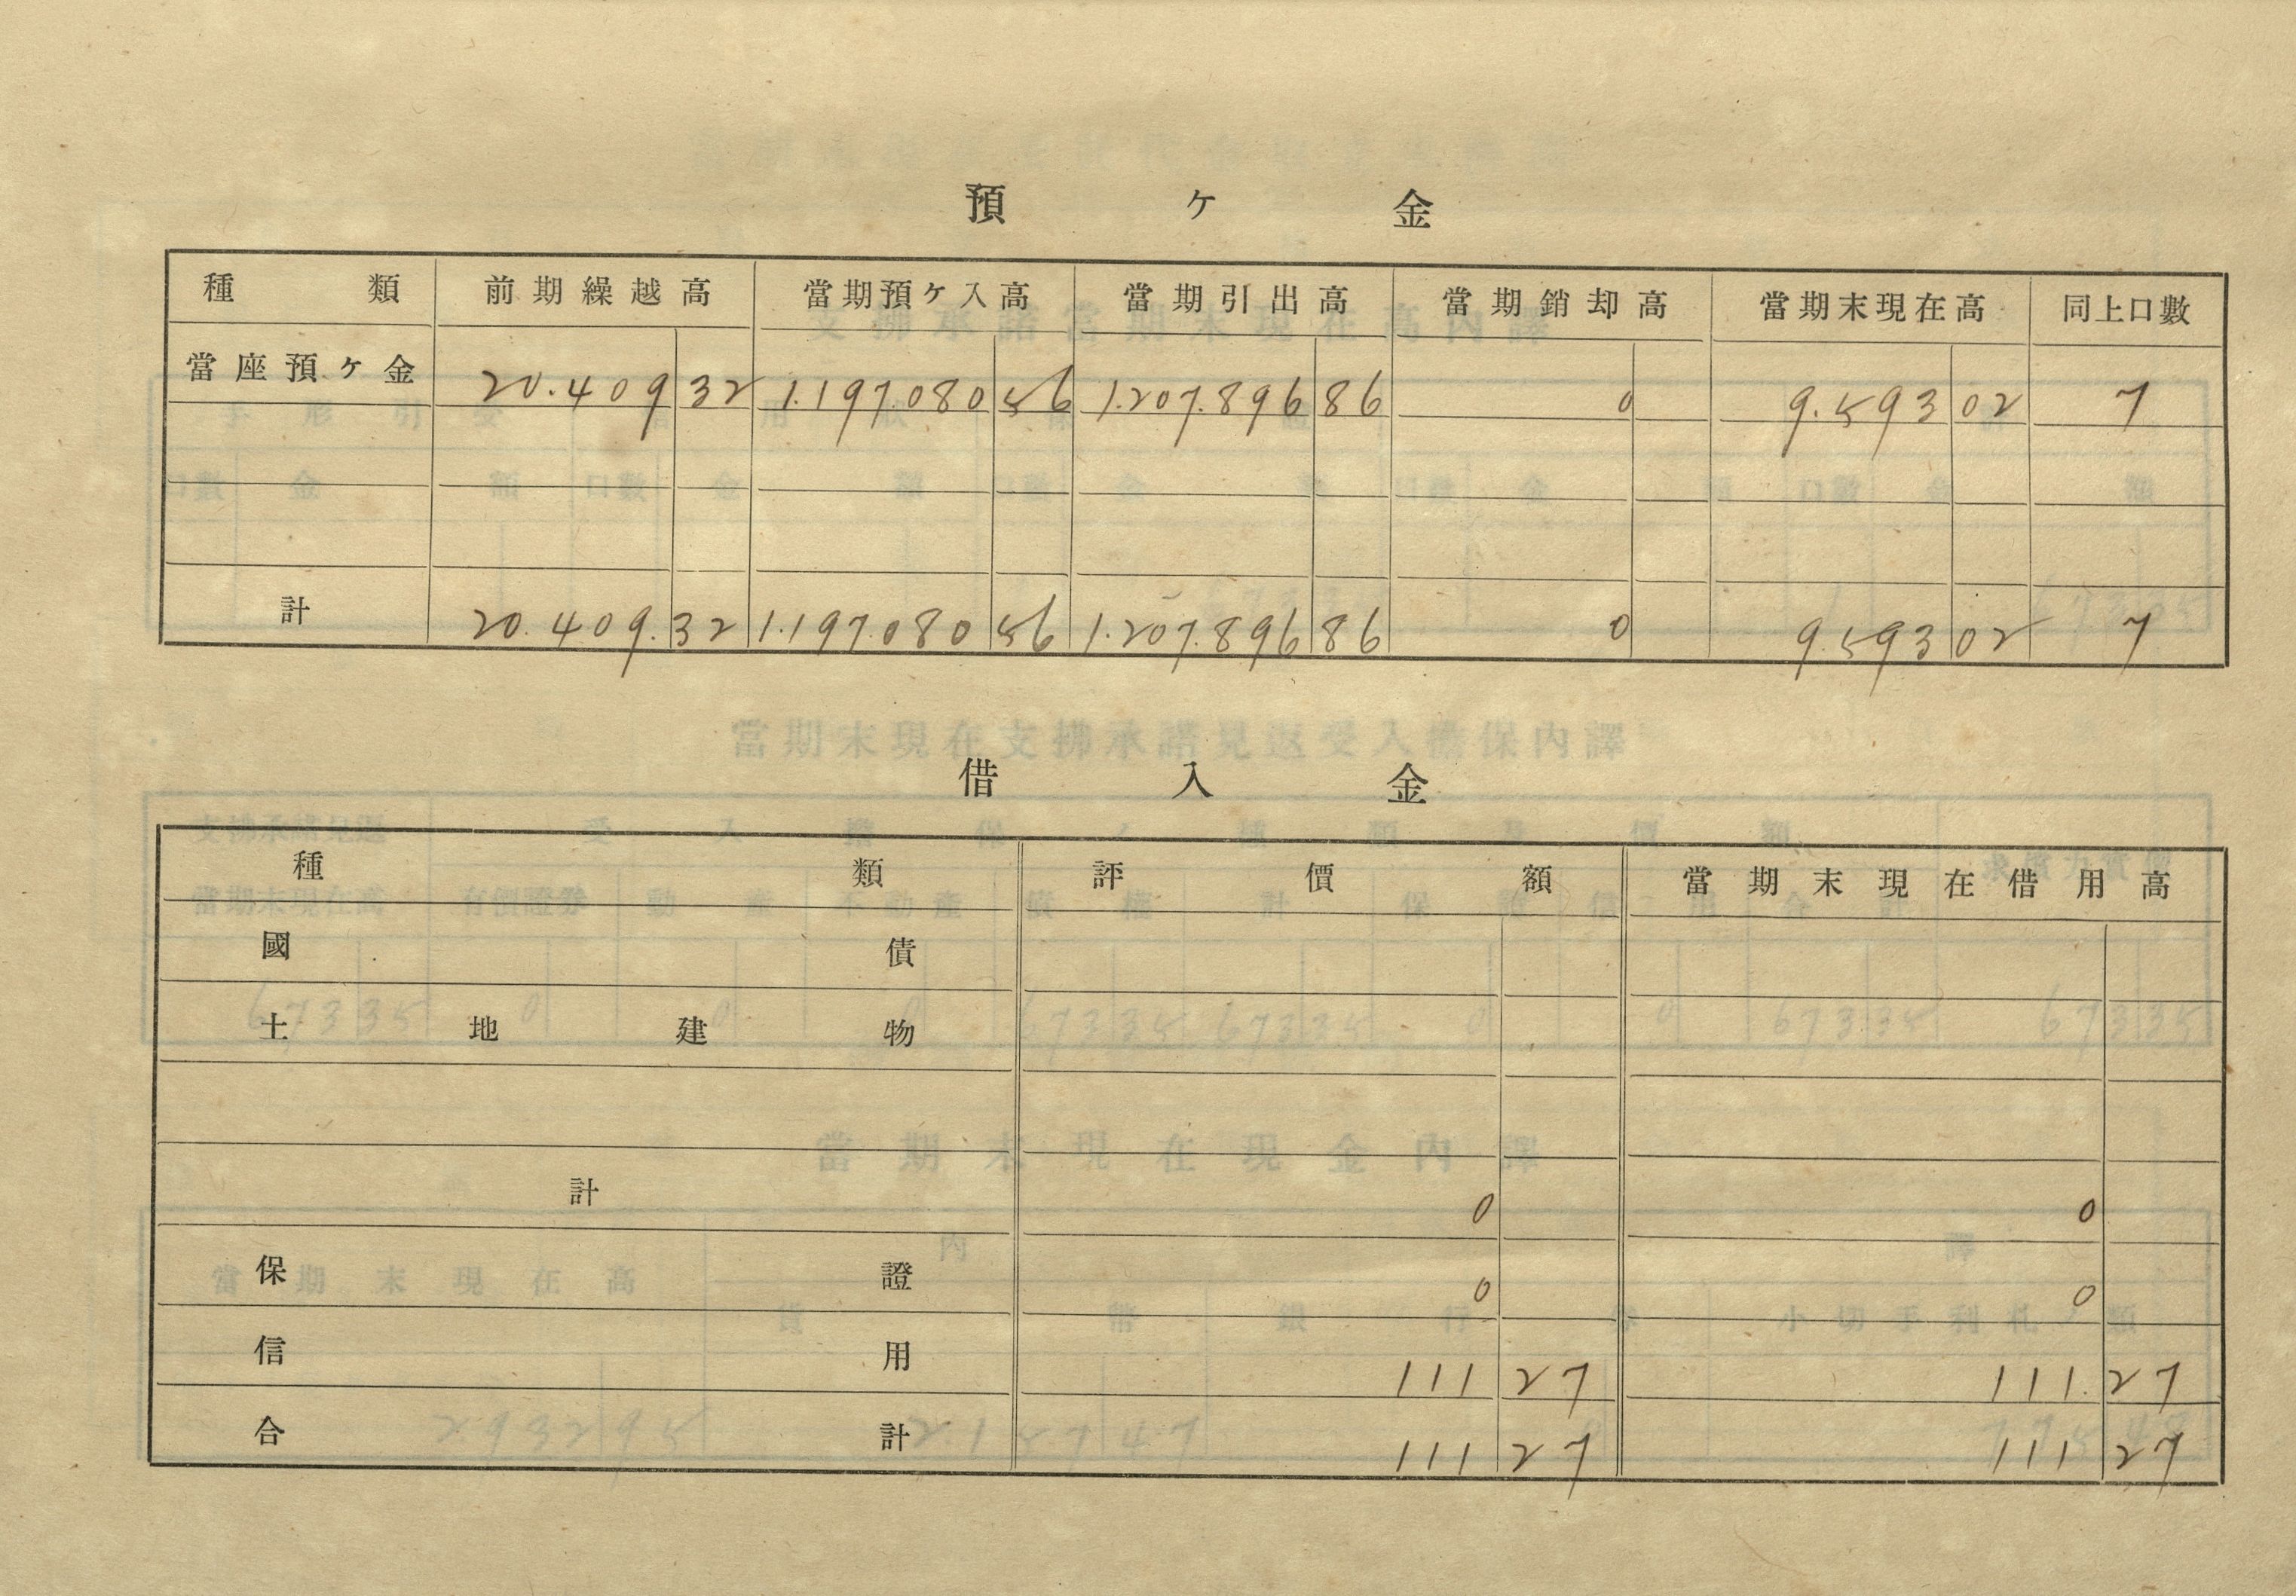 預ケ金
種類 前期繰越高 當期預ケ入高 當期引出高 當期銷却高 當期末現在高 同上口數
當座預ケ金 20.409 32 1.197.080 56 1.207.896 86 0 9.593 02 7
計 20.409. 32 1.197.080 56 1.207.896 86 0 9.593 02 7
借入金
種類 評價額 當期末現在借用高
國債
土地建物
計 0 0
保證 0 0
信用 111 27 111. 27
合計 111 27 111 27